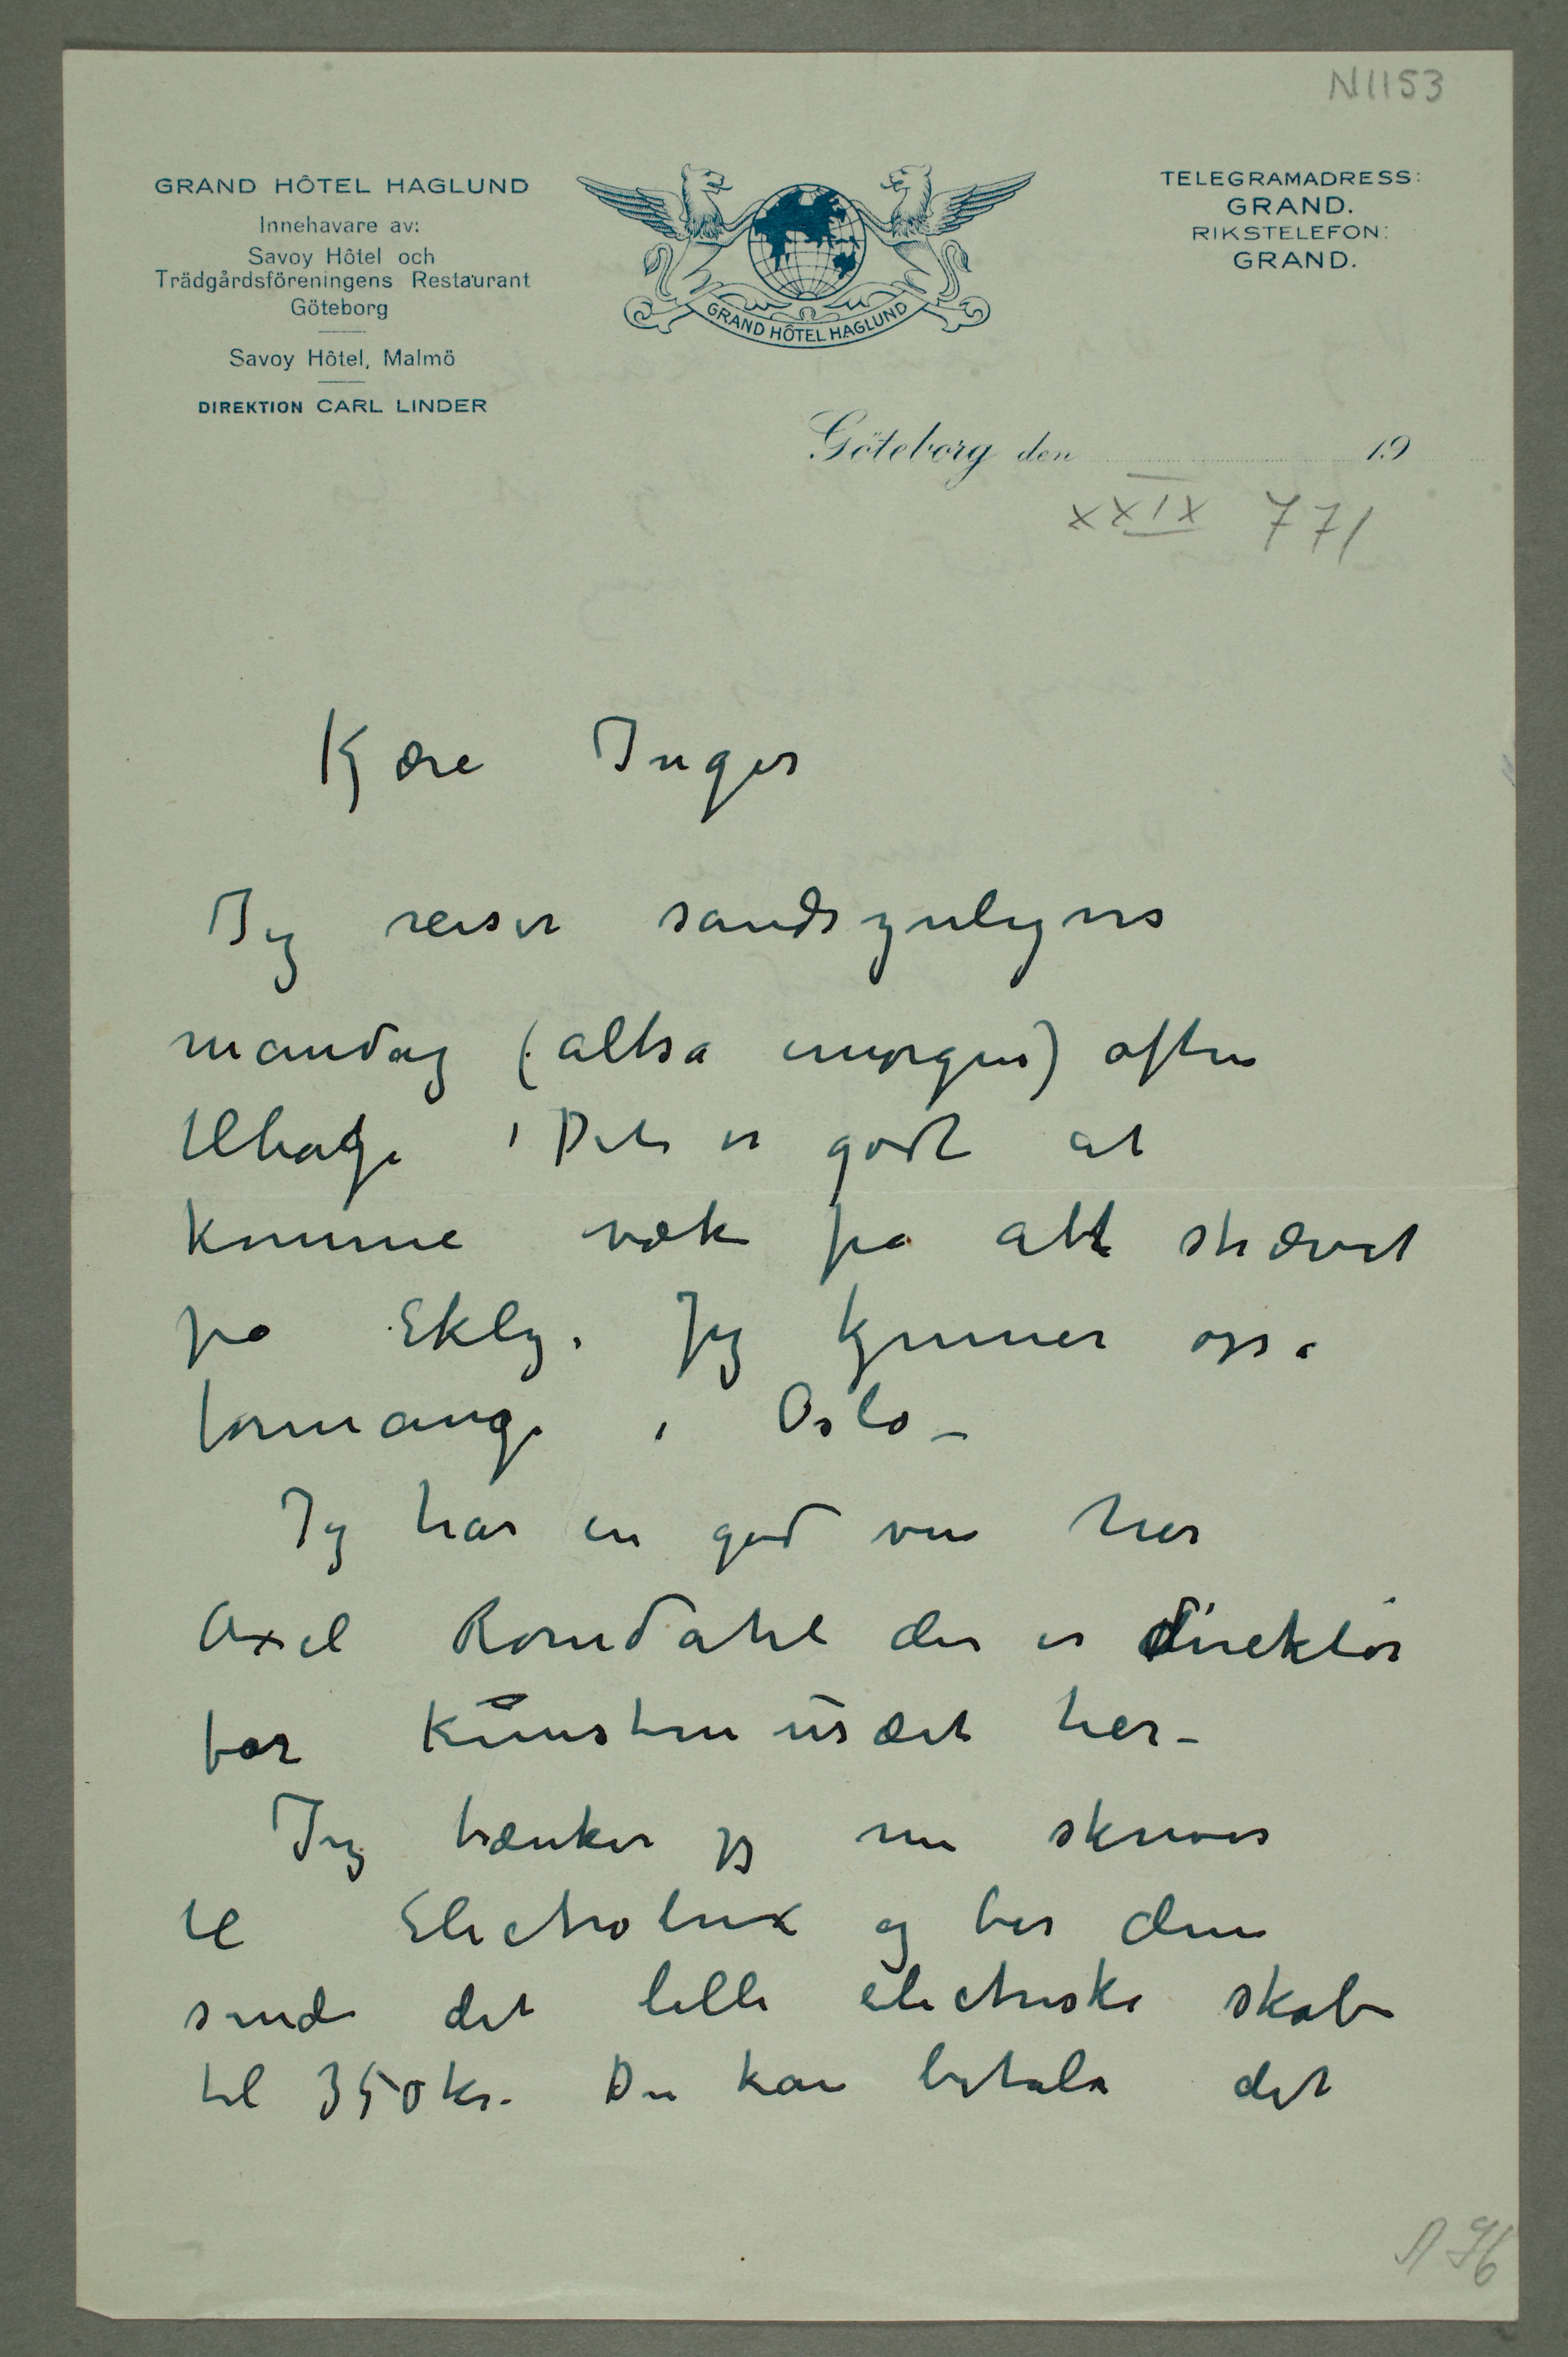 N 1153
GRAND HÔTEL HAGLUND
Innehavare av:
Savoy Hôtel och
Trädgårdsföreningens Restaurant
Göteborg
Savoy Hôtel, Malmö
DIREKTION CARL LINDER
GRAND HÔTEL HAGLUND
TELEGRAMADRESS:
GRAND.
RIKSTELEFON:
GRAND.
Göteborg den 19
XXIX 771
Kjære Inger
Jeg reiser sandsynligvis
mandag (altså imorgen) aften
tilbage Det er godt at
komme væk fra alt strævet
på Ekely. Jeg kjenner også
formange i Oslo –
Jeg har en god ven her
Axel Romdahl der er direktør
for Kunstmuséet her –
Jeg tænker jeg nu skriver
til Electrolux og ber dem
sende det lille electriske skab
til 350 kr. Du kan betale det